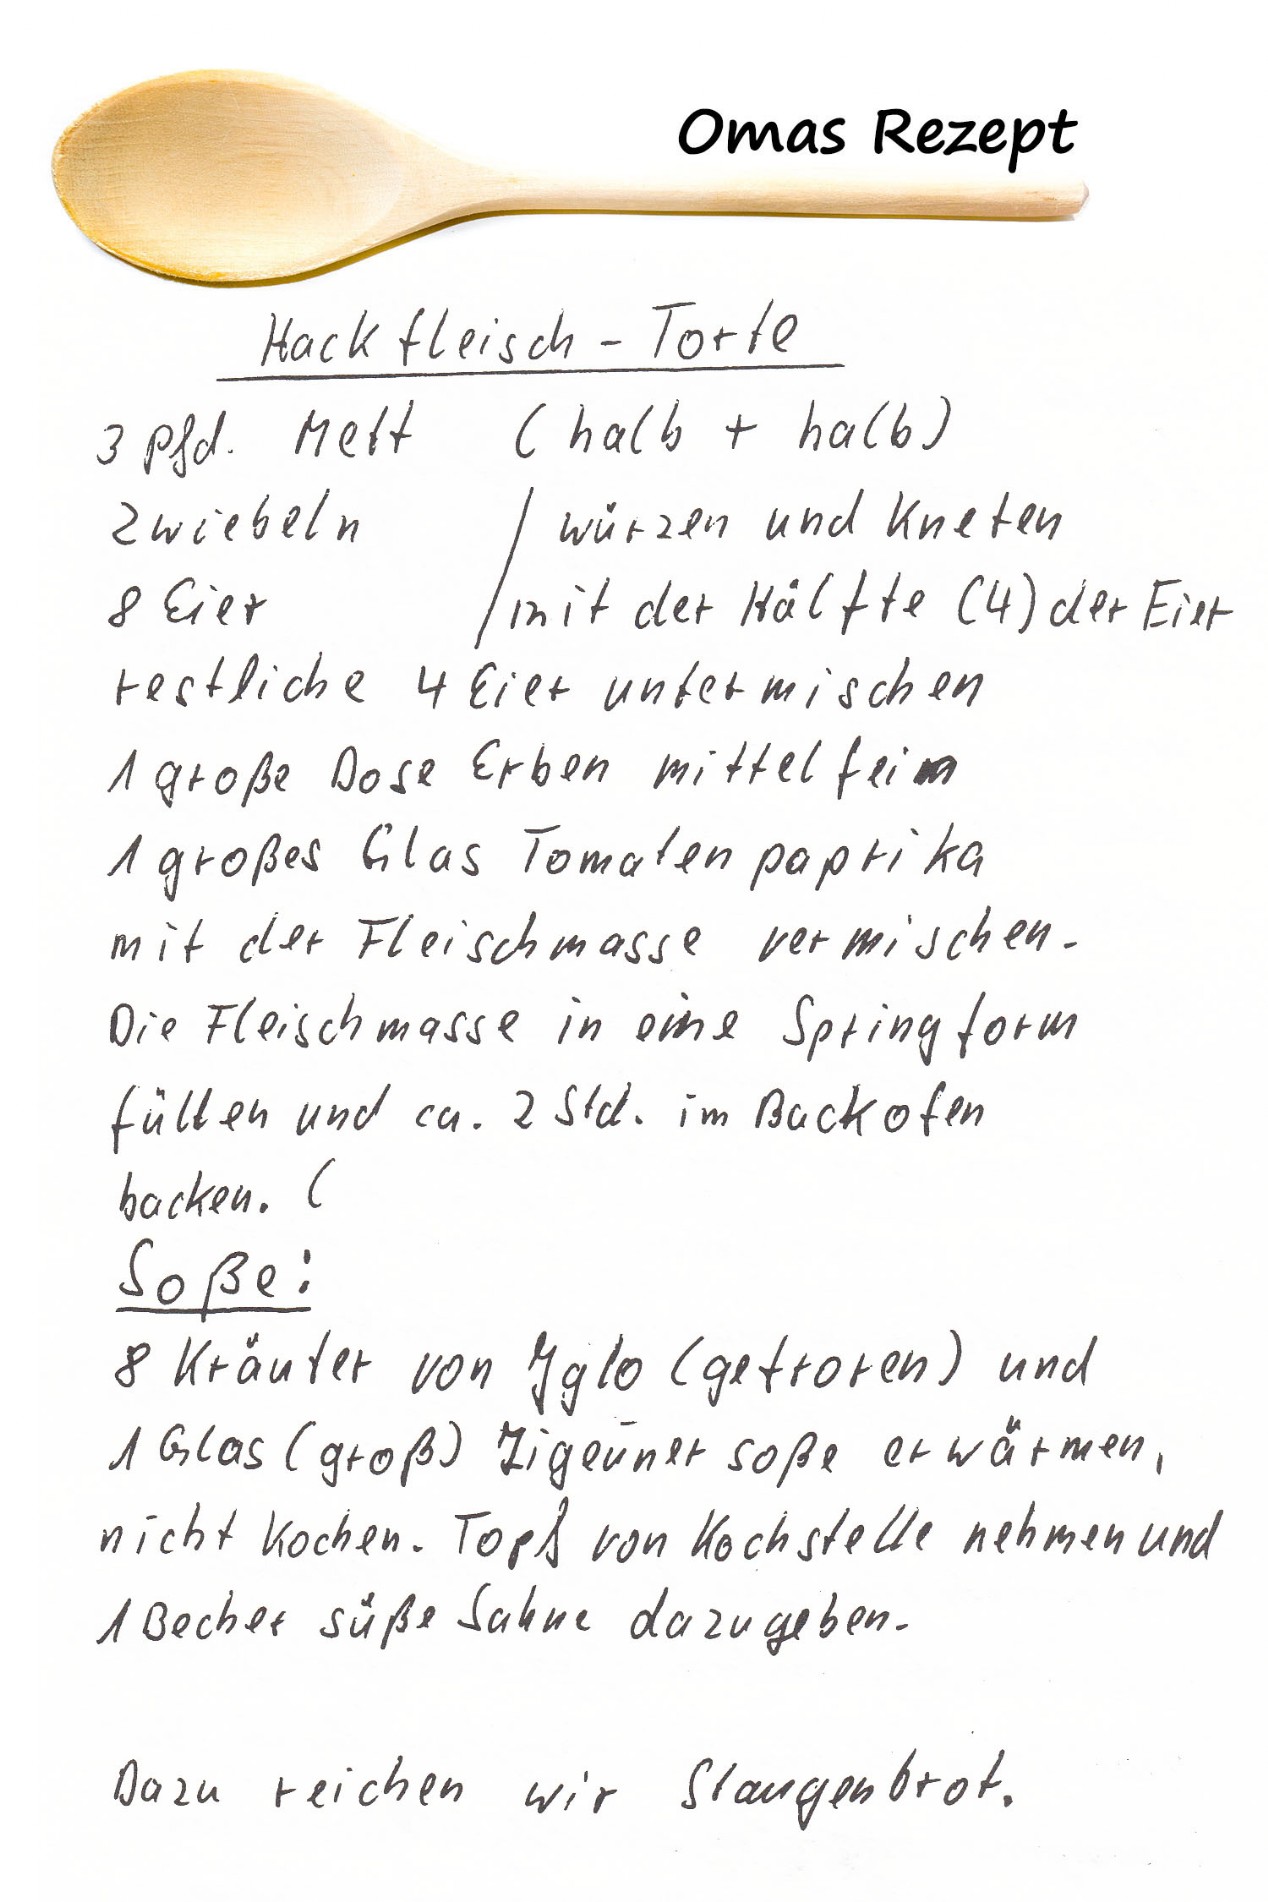 Omas Rezept
Hackfleisch-Torte
3 Pfd. Mett (halb + halb)
Zwiebeln / würzen und kneten
8 Eier / mit der Hälfte (4) der Eier
restliche 4 Eier untermischen
1 große Dose Erben mittelfein
1 großes Glas Tomatenpaprika
mit der Fleischmasse vermischen.
Die Fleischmasse in eine Springform
füllen und ca. 2 Std. im Backofen
backen. (
Soße:
8 Kräuter von Iglo (gefroren) und
1 Glas (groß) Zigeunersoße erwärmen,
nicht kochen. Topf von Kochstelle nehmen und
1 Becher süße Sahne dazugeben.
Dazu reichen wir Stangenbrot.